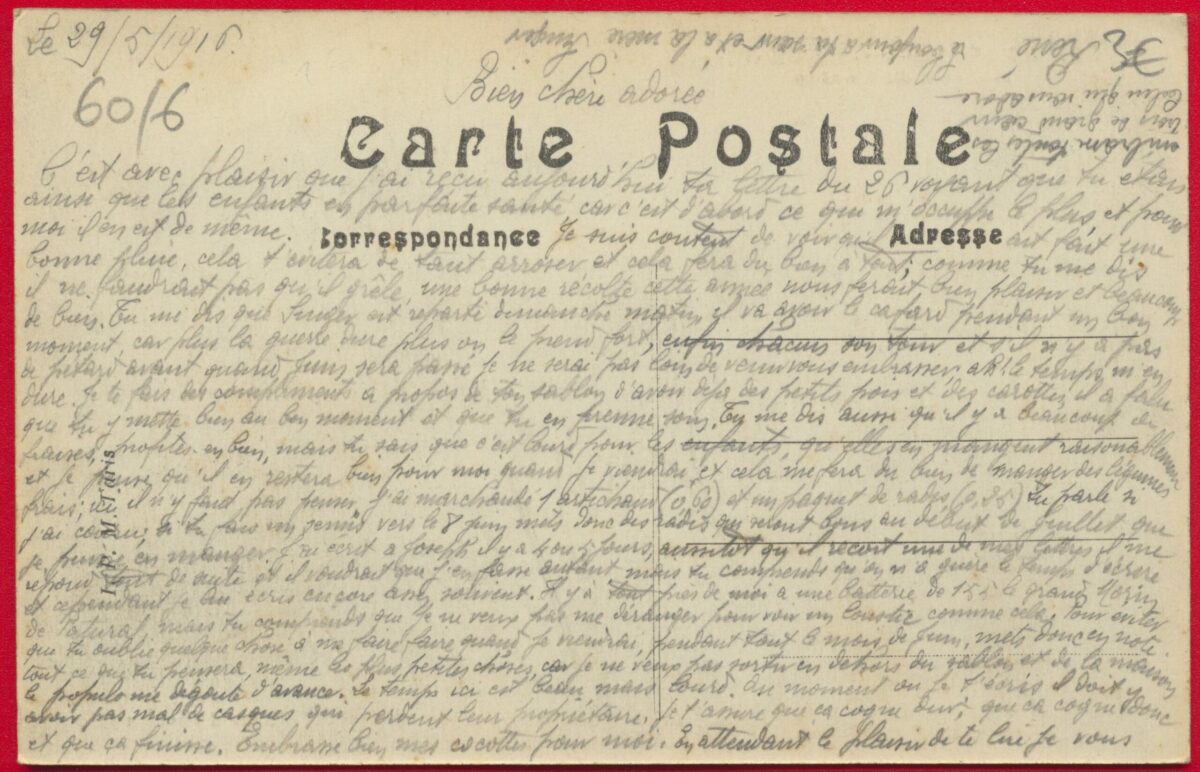 Le 29/5/1916.
60/6
Bien chère adorée
Carte Postale
C'est avec plaisir que j'ai reçu aujourd'hui ta lettre du 26 voyant que tu étais
ainsi que les enfants en parfaite santé car c'est d'abord ce que m'occupe le plus et pour
moi il en est de même.
Correspondance
Je suis content de voir qu'il ait fait une
Adresse
bonne pluie, cela t'evitera de tant arroser et cela fera du bien à tout, comme tu me dis
il ne faudrait pas qu'il grêle, une bonne récolte cette année nous ferait bien plaisir et beaucoup
de bien. Tu me dis que Singer est reparti dimanche matin, il va avoir le cafard pendant un bon
moment car plus la guerre dure plus on le prend fort, enfin chacun son tour et s'il n'y a pas
de pétard avant quand Juin sera passé je ne serai pas loin de venir vous embrasser ah! le temps m'en
dure. Je te fais des compliments a propos de ton sablon d'avoir déjà des petits pois et des carottes, il a fallu
que tu y mette bien au bon moment et que tu en prenne soin. Tu me dis aussi qu'il y a beaucoup de
fraises, profites-en bien, mais tu sais que c'est lourd pour les enfants, qu'elles en mangent raisonablement
et je pense qu'il en restera bien pour moi quand je viendrai et cela me fera du bien de manger des légumes
frais, ici il n'y faut pas penser, j'ai marchandé 1 artichaut (0,60) et un paquet de radis (0,25) tu parle si
j'ai si tu fais un semis vers le 8 juin mets donc des radis qui seront bons au début de Juillet, que
je puisse en manger. J'ai écrit a Joseph il y a 4 ou 5 jours, aussitôt qu'il reçoit une de mes lettres il me
repond tout de suite et il voudrait que j'en fasse autant mais tu comprends qu'on n'a guère le temps d'écrire
et cependant je lui écris encore assez souvent. Il y a tout pas de moi a une batterie de 155 le grand
de mais tu comprends que je ne veux pas me déranger pour voir un comme cela. Pour eviter
que tu oublie quelque chose à me faire faire quand je viendrai, pendant tout le mois de Juin, mets donc en note
tout ce que tu pensera, même les plus petites choses car je ne veux pas sortir en dehors du sablon et de la maison
le populo me dégoute d'avance. Le temps ici est beau mais lourd. Au moment ou je t'écris il doit y
avoir pas mal de casques qui perdent leur propriétaire, je t'assure que ca cogne dur, que ca cogne donc
et que ça finisse. Embrasse bien mes cocottes pour moi. En attendant le plaisir de te lire je vous
embrasse toutes les
trois de grand cœur
Celui qui vous adore
René
Le bonjour a ta sœur et a la mère Singer
I. P. M. Paris